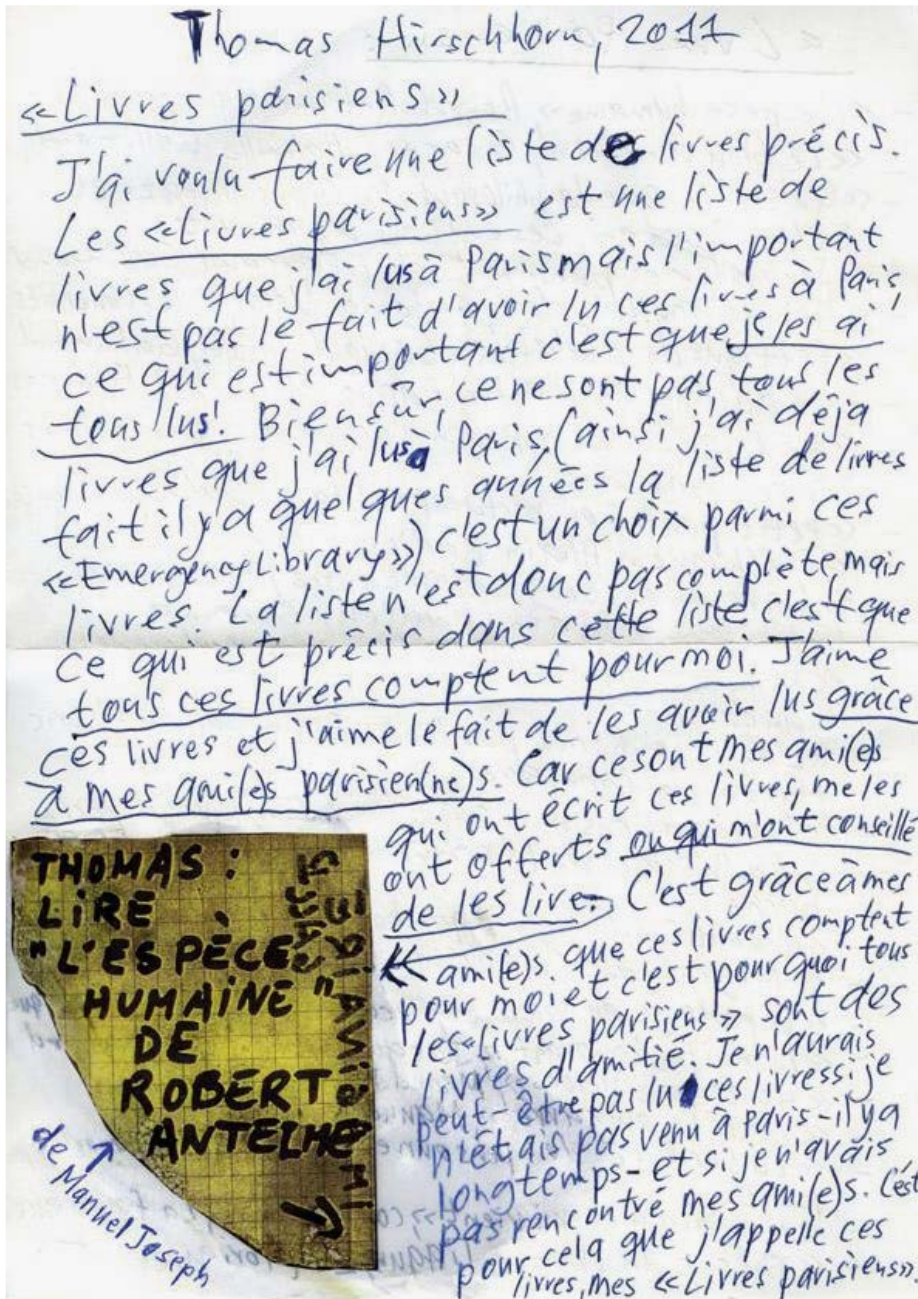 Thomas Hirschhorn, 2011
«Livres parisiens»
J'ai voulu faire une liste des livres précis.
Les «Livres parisiens» est une liste de
livres que j'ai lus à Paris mais l'important
n'est pas le fait d'avoir lu ces livres à Paris,
ce qui est important c'est que je les ai
tous lus! Bien sûr, ce ne sont pas tous les
livres que j'ai lus à Paris, (ainsi j'ai déja
fait il y a quelques années la liste de livres
«Emergency Library») c'est un choix parmi ces
livres. La liste n'est donc pas complète, mais
ce qui est précis dans cette liste c'est que
tous ces livres comptent pour moi. J'aime
ces livres et j'aime le fait de les avoir lus grâce
à mes ami(e)s parisien(ne)s. Car ce sont mes ami(e)s
qui ont écrit ces livres, me les
ont offerts ou qui m'ont conseillé
de les lire. C'est grâce à mes
ami(e)s que ces livres comptent
pour moi et c'est pourquoi tous
les «livres parisiens» sont des
livres d'amitié. Je n'aurais
peut-être pas lu ces livres si je
n'étais pas venu à Paris - il y a
longtemps - et si je n'avais
pas rencontré mes ami(e)s. C'est
pour cela que j'appelle ces
livres, mes «Livres parisiens».
THOMAS :
LIRE
"L'ESPÈCE
HUMAINE"
DE
ROBERT
ANTELME
de Manuel Joseph